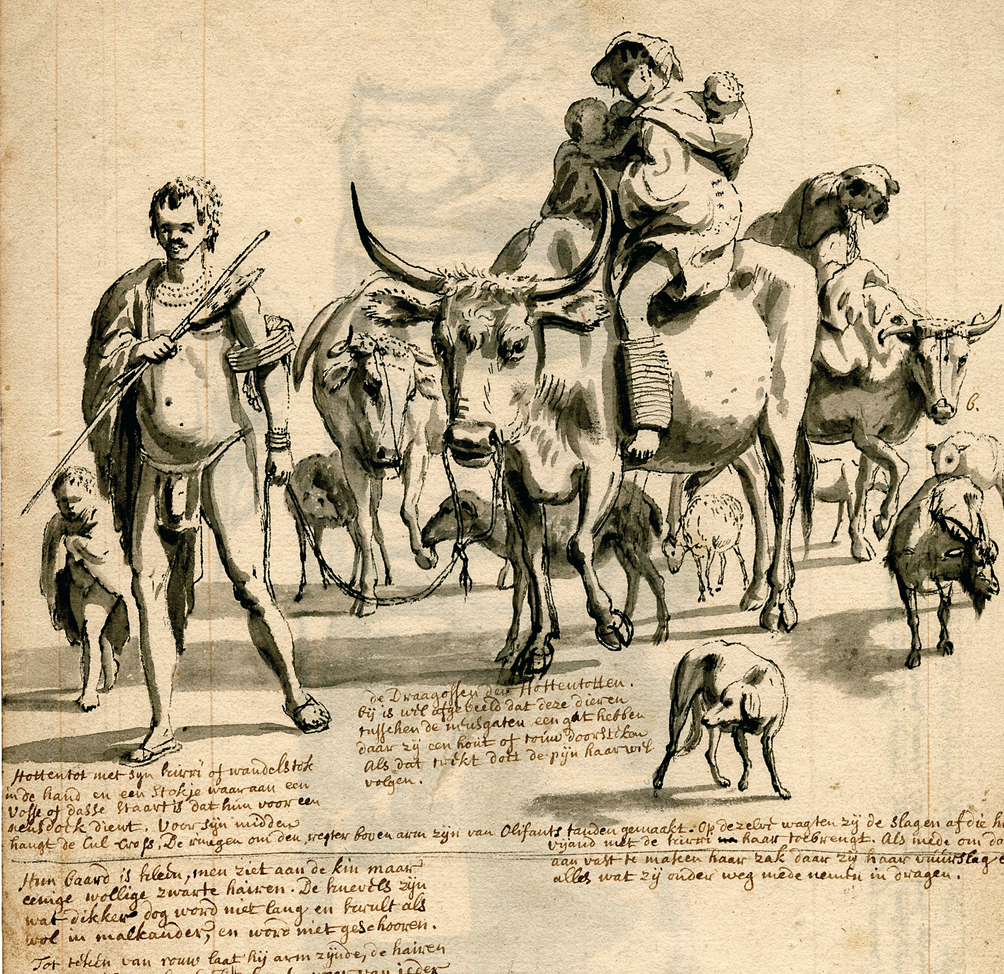 6.
de Draagossen der Hottentotten.
bij is wel afgebeeld dat deze dieren
tusschen de neusgaten een gat hebben
daar zij een hout of touw doorsteken
Als dat trekt doet de pijn haar wel
volgen.
Hottentot met syn kirri of wandelstok
in de hand en een stokje waar aan een
Vosse of dasse staart is dat hun voor een
neusdoek dient. Voor sijn midden
hangt de Cul Cross. De ringen om den regter boven arm zijn van Olifants tanden gemaakt. Op dezelve wagten zij de slagen af die
vijand met de kirri haar toebrengt. Als mede om
aan vast te maken haar zak daar zij haar vuurslag
alles wat zij onder weg mede nemen in dragen.
Hun baard is klein, men ziet aan de kin maar
eenige wollige zwarte hairen. De knevels zijn
wat dikker dog word niet lang en krult als
wol in malkander, en word niet geschooren.
Tot teken van rouw laat hij arm zijnde, de hairen
van ieder